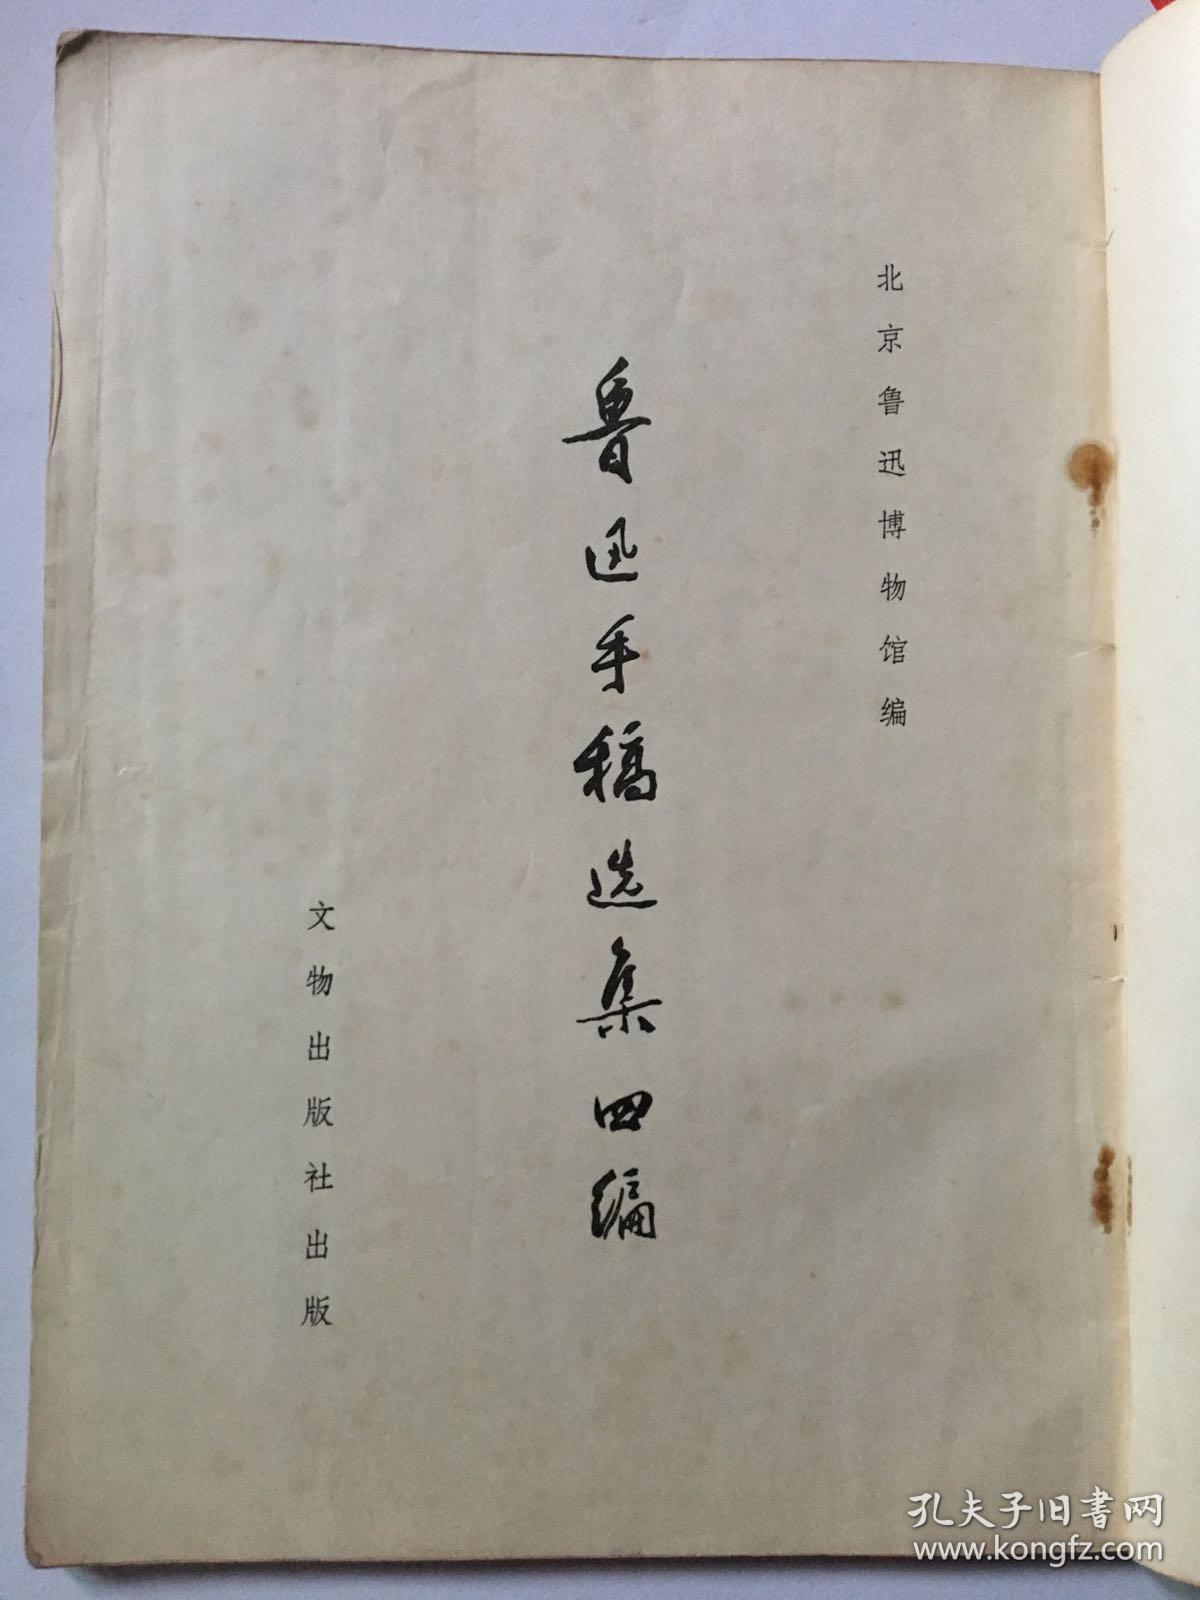 北京鲁迅博物馆编
鲁迅手稿选集四编
文物出版社出版
孔夫子旧书网
www.kongfz.com